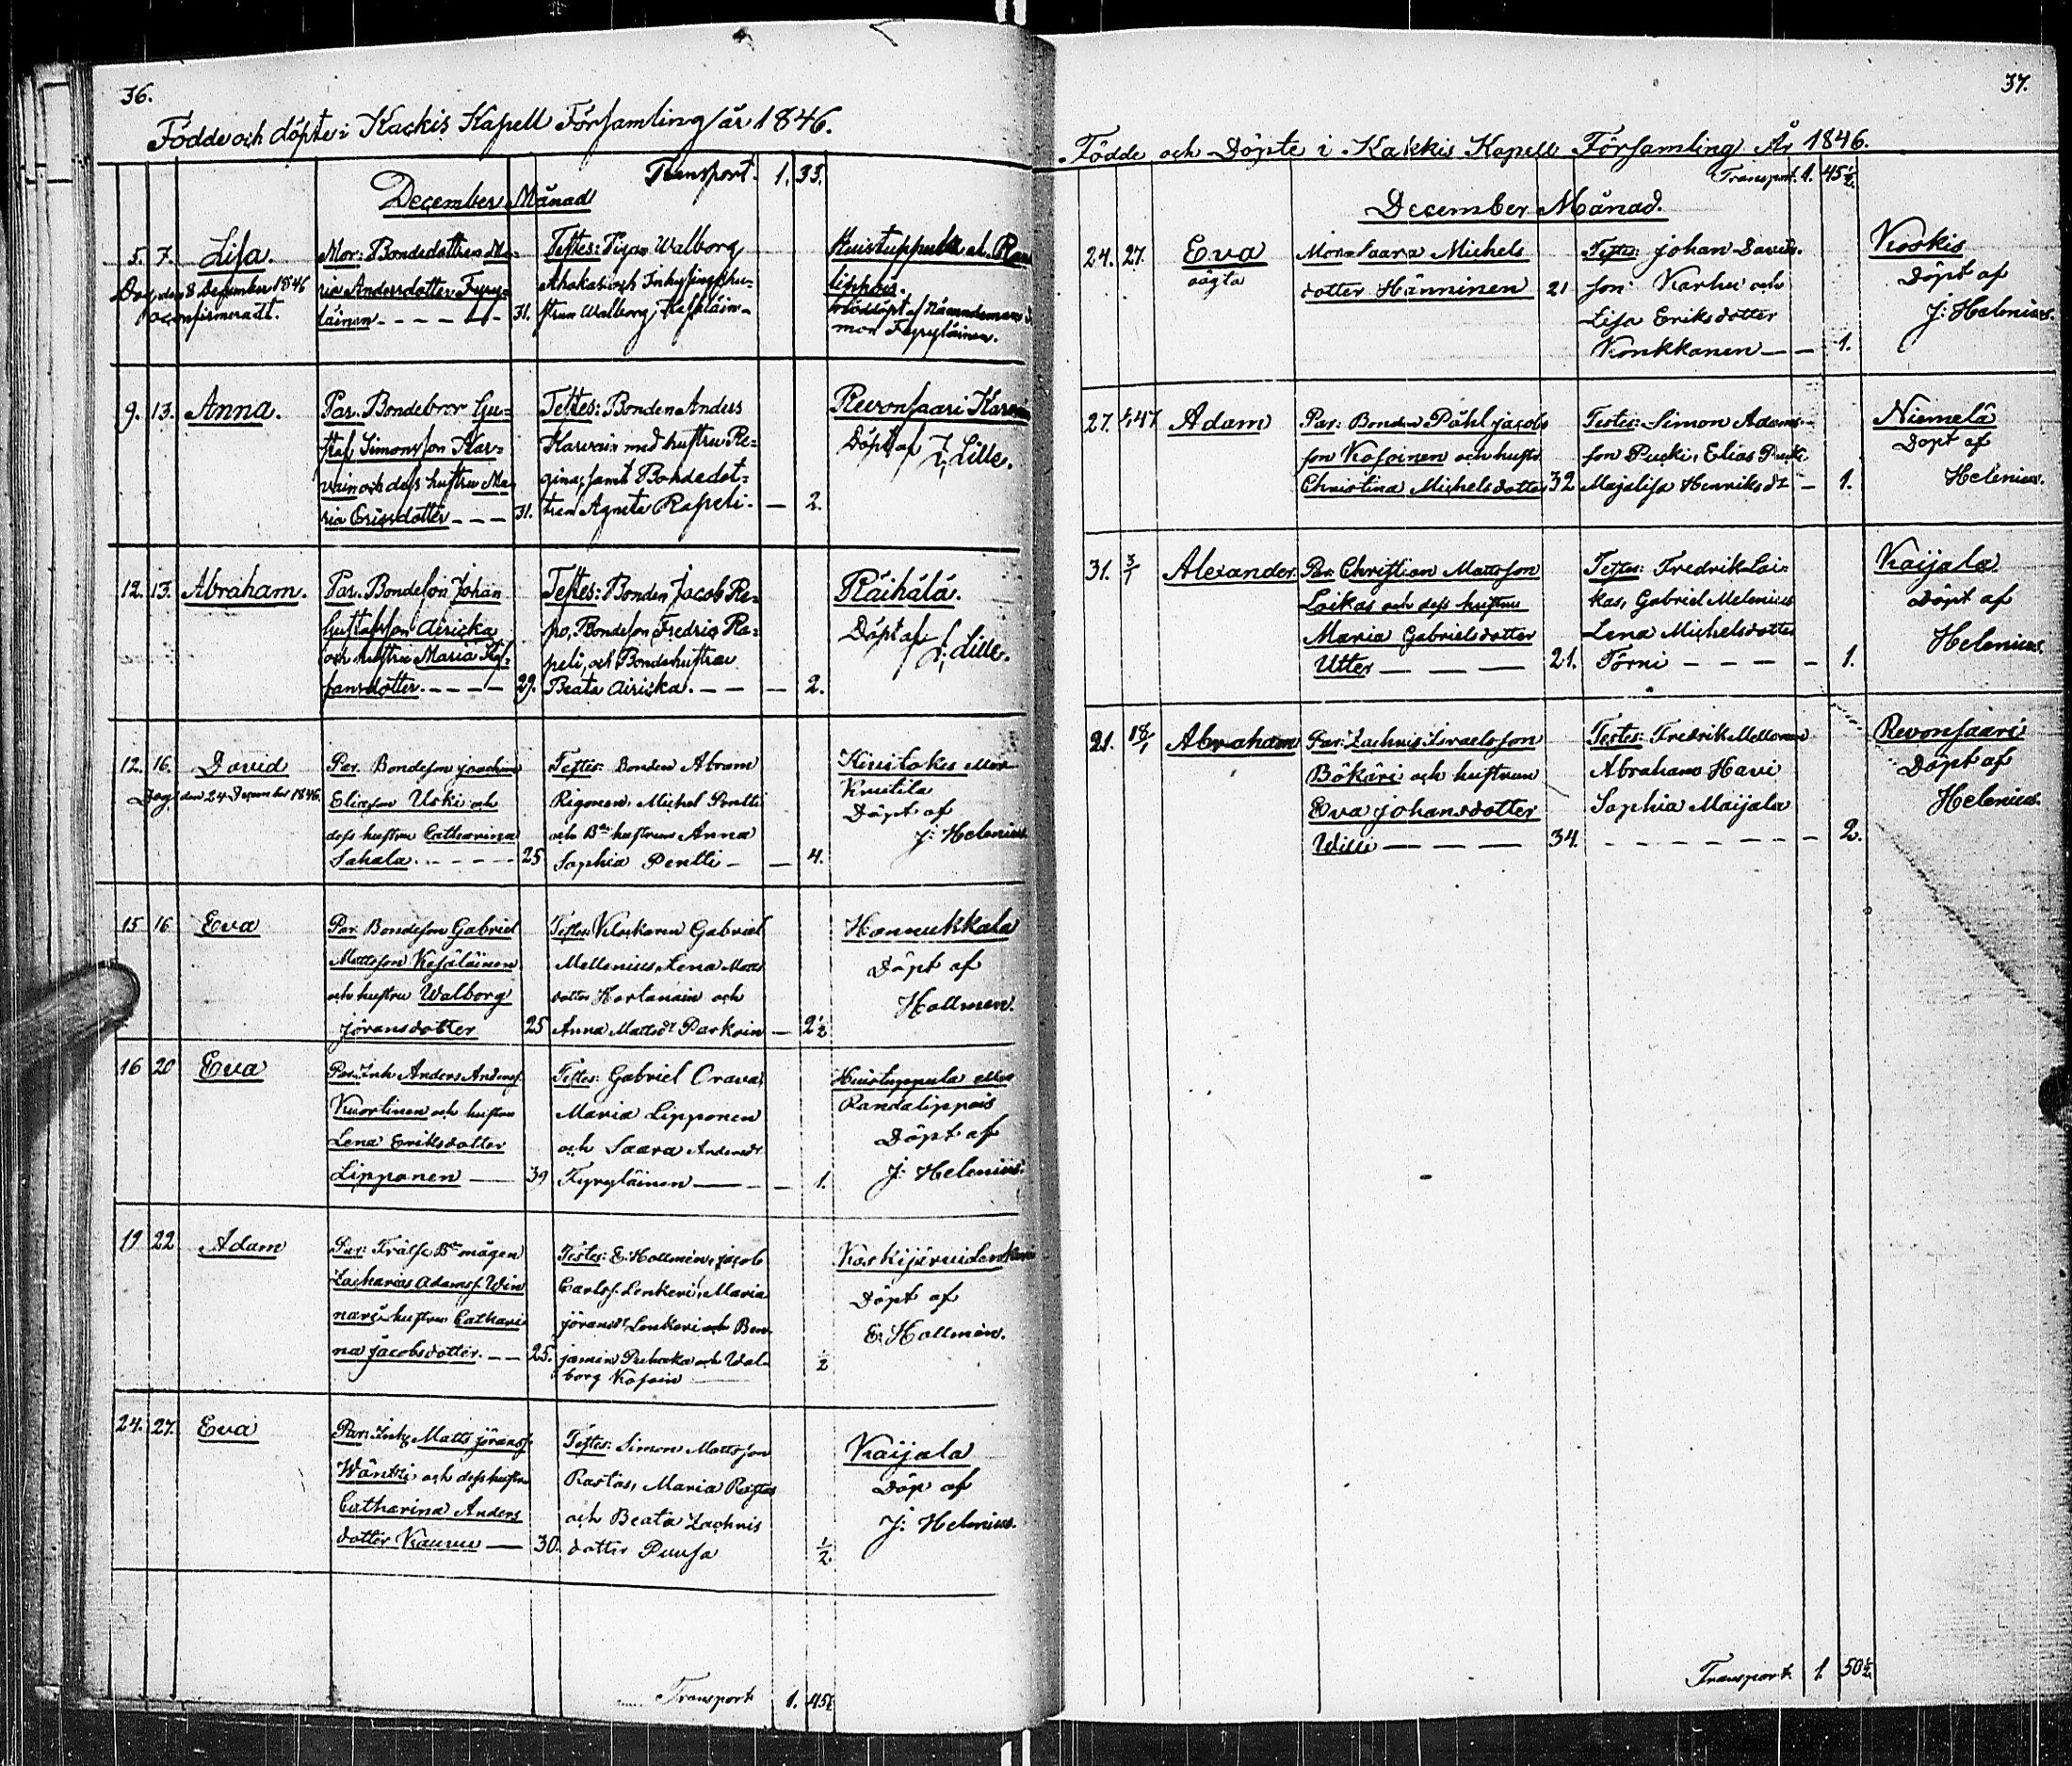 36.
Födde och döpte i Kackis Kapell Församling år 1846.
Transport. 1. 33.
December Månad
5. 7. Lisa.
Dog den 8 December 1846
oconfirmeradt.
Mor: Bondedottren Ma-
ria Andersdotter Fyry-
läinen - - - - - 31.
Testes: Pigan Walborg
och Inhysingshu-
strun Walborg
Huistuppula el. Ran
nöddöpt af Nämndeman
mon Fyryläinen.
9. 13. Anna.
Par. Bondebror Gu-
staf Simonsson Kar-
vain och dess hustru Ma-
ria Ericsdotter - - - 31.
Testes: Bonden Anders
Karvain med hustru Re-
gina, samt Bondedot-
tren Agneta Rapeli. - 2.
Revonsaari Karvain
Döpt af J. Lille.
12. 13. Abraham.
Par. Bondeson Johan
Gustafsson Airicka
och hustru Maria Staf-
fansdotter. - - - - 29.
Testes: Bonden Jacob Re-
po, Bondeson Fredric Ra-
peli, och Bondehustrun
Beata Airicka. - - - 2.
Räihälä.
Döpt af J. Lille.
12. 16. David
Dog den 24 December 1846.
Par. Bondeson Joachim
Eliasson Uski och
dess hustru Catharina
Sahala. - - - - - 25
Testes: Bonden Abram
Rigonen, Michel Pentti
och Bde hustrun Anna
Sophia Pentti - - 4.
Kiurlokis eller
Knutila
Döpt af
J: Helenius
15 16 Eva
Par. Bondeson Gabriel
Mattsson Kesäläinen
och hustru Walborg
Jöransdotter 25
Testes: Klockaren Gabriel
Mellenius, Lena Matts
dotter Hartanain och
Anna Mattsdr Parkoin - 2½
Hannukkala
Döpt af
Hallmen.
16 20 Eva
Par. Inh Anders Andersf.
Kuortinen och hustru
Lena Eriksdotter
Lipponen - 39
Testes: Gabriel Orava,
Maria Lipponen
och Saara Andersdr
Fyryläinen - - - 1.
Huistuppula eller
Randalippois
Döpt af
J: Helenius.
19 22 Adam
Par: Frälse Bde mågen
Zacharias Adamsf. Win
nari hustru Cathari
na Jacobsdotter. - - 25.
Testes: E. Hallmén, Jacob
Carlsf. Lenkeri, Maria
Jöransdr Lenkeri och Ben
jamin och Wal-
borg Kosoin ½
Koskijärvi Lenkeri
Döpt af
E. Hallmén.
24. 27. Eva
Par: Inh Matts Jöransf.
Wäntti och dess hustru
Catharina Anders
dotter Kauru - 30.
Testes: Simon Mattsson
Rastas, Maria Rastas
och Beata Zachris
dotter Puusa ½
Kaijala
Döp af
J: Helenius.
Transport 1. 45½
37.
Födde och Döpte i Kakkis Kapell Församling År 1846.
Transport. 1. 45½.
December Månad.
24. 27. Eva
oägta
Mor: Saara Michels
dotter Hänninen 21
Testes: Johan Davids-
son Karhu och
Lisa Eriksdotter
Konkkanen - - 1.
Koskis
Döpt af
J: Helenius.
27. 1/1 47 Adam
Par: Bonden Påhl Jacobs
son Kosoinen och hustr.
Christina Michelsdotter 32
Testes: Simon Adams-
son Pucki, Elias Pucki
Majalisa Henriksdr - 1.
Niemelä
Döpt af
Helenius.
31. 3/1 Alexander.
Par: Christian Mattsson
Loikas och dess hustru
Maria Gabrielsdotter
Utter - - - 21.
Testes: Fredrik Loi-
kas, Gabriel Melenius
Lena Michelsdotter
Törni - - - - - 1.
Kaijala
Döpt af
Helenius.
21. 18/1 Abraham
Par: Zachris Israelsson
Bökäri och hustrun
Eva Johansdotter
Willi - - - 34.
Testes: Fredrik Mellonen
Abraham Havi
Sophia Maijala
- - - - - - - 2.
Revonsaari
Döpt af
Helenius.
Transport. 1. 50½